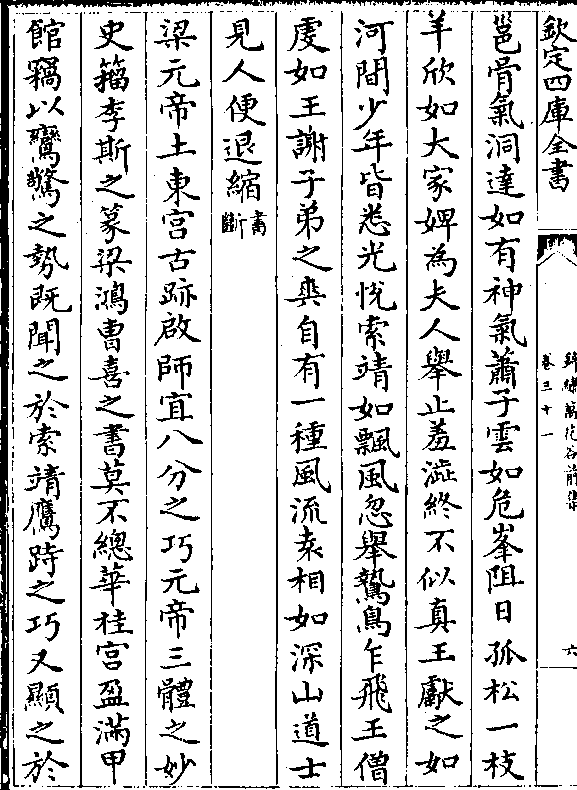 欽定四庫全書
錦繡萬花谷前集
卷三十一
六
邕骨氣洞達如有神氣蕭子雲如危峯阻日孤松一枝
羊欣如大家婢為夫人舉止羞澁終不似真王獻之如
河間少年皆悉光悅索靖如飄風忽舉鷙鳥乍飛王僧
虔如王謝子弟之輿自有一種風流袁相如深山道士
見人便退縮書斷
梁元帝上東宫古跡啟師宜八分之巧元帝三體之妙
史籀李斯之篆梁鴻曹喜之書莫不總華桂宫盈滿甲
館竊以鸞驚之勢既聞之於索靖鷹跱之巧又顯之於